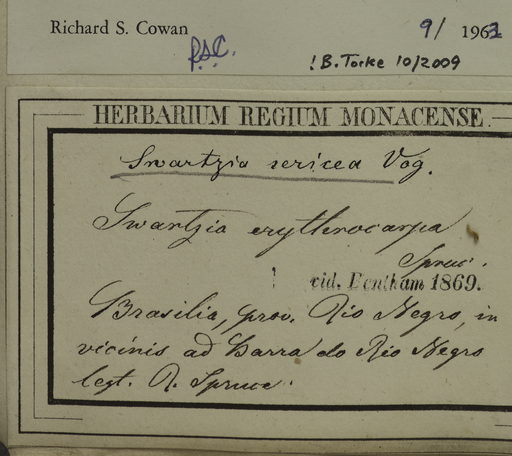 Richard S. Cowan 9/ 1961
RSC.
! B. Torke 10/2009
HERBARIUM REGIUM MONACENSE.
Swartzia sericea Vog.
Swartzia erythrocarpa
Spruce.
vid. Bentham 1869.
Brasilia, prov. Rio Negro, in
vicinis ad Barra do Rio Negro
legt. R. Spruce.